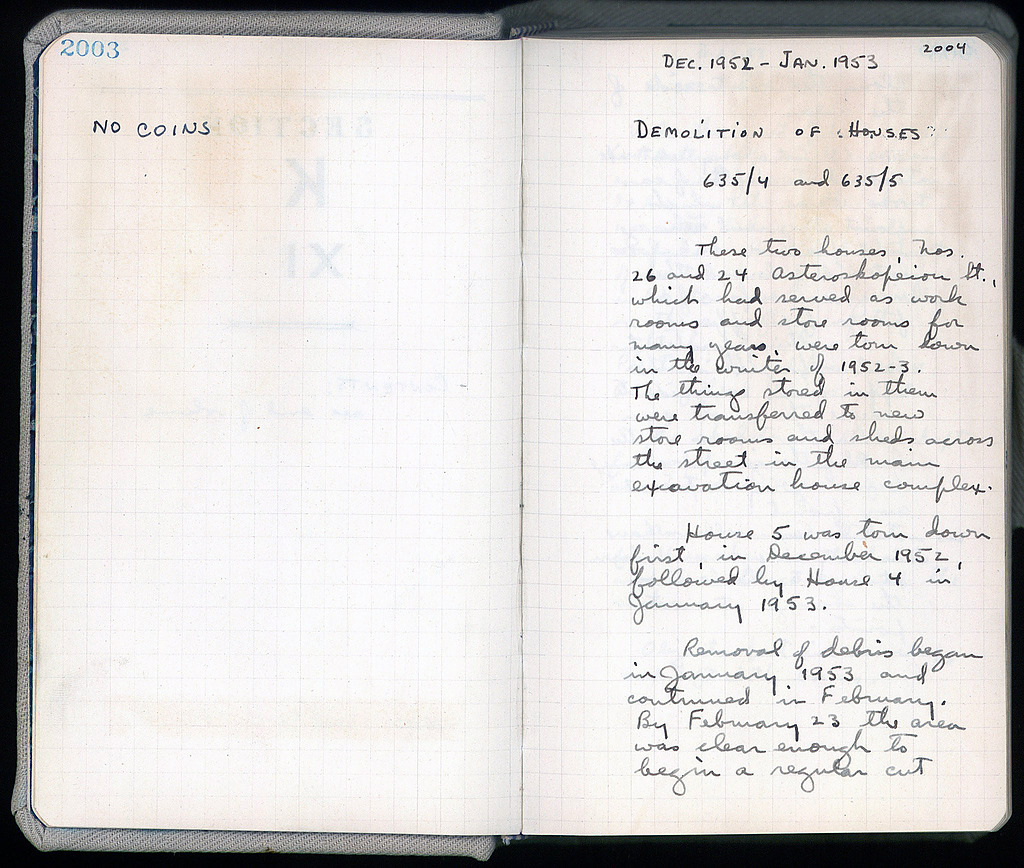 2003
NO COINS
2004
DEC. 1952 - JAN. 1953
DEMOLITION OF HOUSES
635/4 and 635/5
These two houses, Nos.
26 and 24 Asteroskopeion St.,
which had served as work
rooms and store rooms for
many years, were torn down
in the winter of 1952-3.
The things stored in them
were transferred to new
store rooms and sheds across
the street in the main
excavation house complex.
House 5 was torn down
first, in December 1952,
followed by House 4 in
January 1953.
Removal of debris began
in January 1953 and
continued in February.
By February 23 the area
was clear enough to
begin a regular cut